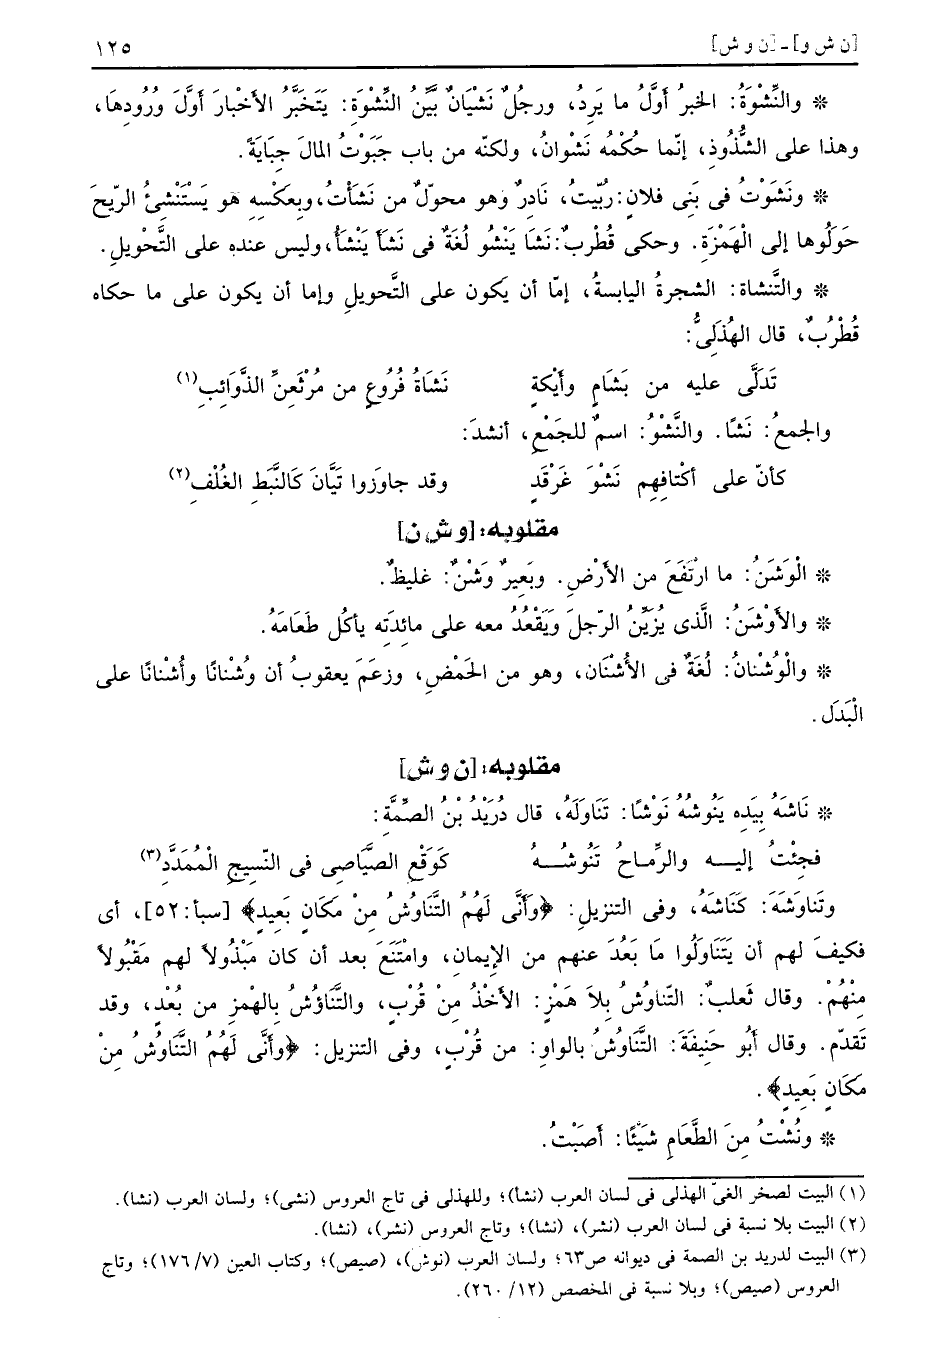 [ن ش و] ـ [ن و ش]
١٢٥
❊ والنِّشْوَةُ: الخبرُ أوَّلُ ما يَرِدُ، ورجلٌ نَشْيَانٌ بَيِّنُ النِّشْوَةِ: يَتَخَبَّرُ الأخْبارَ أوَّلَ وُرُودِهَا،
وهذا على الشُّذُوذِ، إنّما حُكْمُه نَشْوانُ، ولكنّه من باب جَبَوْتُ المالَ جِبَايَةً.
❊ ونَشَوْتُ فى بَنِى فلانٍ: رُبِّيتُ، نَادِرٌ وَهو محولٌ من نَشَأْتُ، وبِعكْسِهِ هو يَسْتَنْشِئُ الرِّيحَ
حَوّلُوها إلى الْهَمْزَةِ. وحكى قُطْرِبٌ: نَشَا يَنْشُو لُغَةٌ فى نَشَأَ يَنْشَأُ، وليس عنده على التَّحْوِيلِ.
❊ والنَّشاة: الشجرةُ اليابسةُ، إمّا أن يَكون على التَّحويلِ وإما أن يكون على ما حكاه
قُطْرُبٌ، قال الهُذَلِىُّ:
تَدَلَّى عليه من بَشَامٍ وأيْكةٍ نَشَاةُ فُرُوعٍ من مُرْثَعِنِّ الذَّوَائِبِ(١)
والجمعُ: نَشًا. والنَّشْوُ: اسمٌ للجَمْعِ، أنشدَ:
كأنّ على أكْتافِهِم نَشْوَ غَرْقَدٍ وقد جاوَزوا نَيَّانَ كَالنَّبَطِ الغُلْفِ(٢)
مقلوبه: [و ش ن]
❊ الْوَشَنُ: ما ارْتَفَعَ من الأرْضِ. وبَعِيرٌ وَشْنٌ: غليظٌ.
❊ والأوْشَنُ: الَّذى يُزَيِّنُ الرّجلَ وَيَقْعُدُ معه على مائِدَتِه يأكُل طَعَامَهُ.
❊ والْوُشْنانُ: لُغَةٌ فى الأُشْنَان، وهو من الحَمْضِ، وزعَمَ يعقوبُ أن وُشْنانًا وأُشْنانًا على
الْبَدَلِ.
مقلوبه: [ن و ش]
❊ نَاشَهُ بِيَدِه يَنُوشُهُ نَوْشًا: تَنَاوَلَهُ، قال دُرَيْدُ بْنُ الصِّمَّة:
فجِئْتُ إليــه والرِّمـاحُ تَنُوشُــهُ كَوَقْعِ الصَّيَاصِى فى النّسيجِ الْمُمَدَّدِ(٣)
وتَناوَشَهَ: كَنَاشَهُ، وفى التنزيلِ: ﴿وَأَنَّى لَهُمُ التَّنَاوُشُ مِنْ مَكَانٍ بَعِيدٍ﴾ [سبأ: ٥٢]، أى
فكيفَ لهم أن يَتَنَاوَلُوا مَا بَعُدَ عنهم من الإيمانِ، وامْتَنَعَ بعد أن كان مَبْذُولاً لهم مَقْبُولاً
مِنْهُمْ. وقال ثَعلبٌ: التّناوُشُ بِلاَ هَمْزٍ: الأخْذُ مِنْ قُرْبٍ، والتَّنَاؤُشُ بالهْمزِ من بُعْدٍ، وقد
تَقدّم. وقال أبُو حَنِيفَةَ: التَّنَاوُشُ بالواوِ: من قُرْبٍ، وفى التنزيل: ﴿وأَنَّى لَهُمُ التَّنَاوُشُ مِنْ
مَكَانٍ بَعِيدٍ﴾.
❊ ونُشْتُ مِنَ الطَّعَامِ شَيْئًا: أصَبْتُ.
(١) البيت لصخر الغىّ الهذلى فى لسان العرب (نشأ)؛ وللهذلى فى تاج العروس (نشى)؛ ولسان العرب (نشا).
(٢) البيت بلا نسبة فى لسان العرب (نشر)، (نشا)؛ وتاج العروس (نشر)، (نشا).
(٣) البيت لدريد بن الصمة فى ديوانه ص٦٣؛ ولسان العرب (نوش)، (صيص)؛ وكتاب العين (٧/ ١٧٦)؛ وتاج
العروس (صيص)؛ وبلا نسبة فى المخصص (١٢/ ٢٦٠).